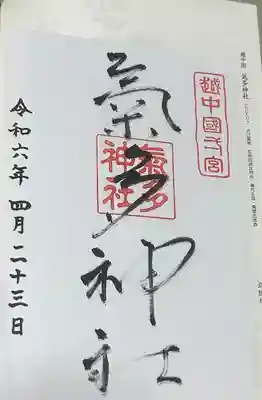 越中國一宮
氣多神社
氣多
神社
令和六年 四月 二十三日